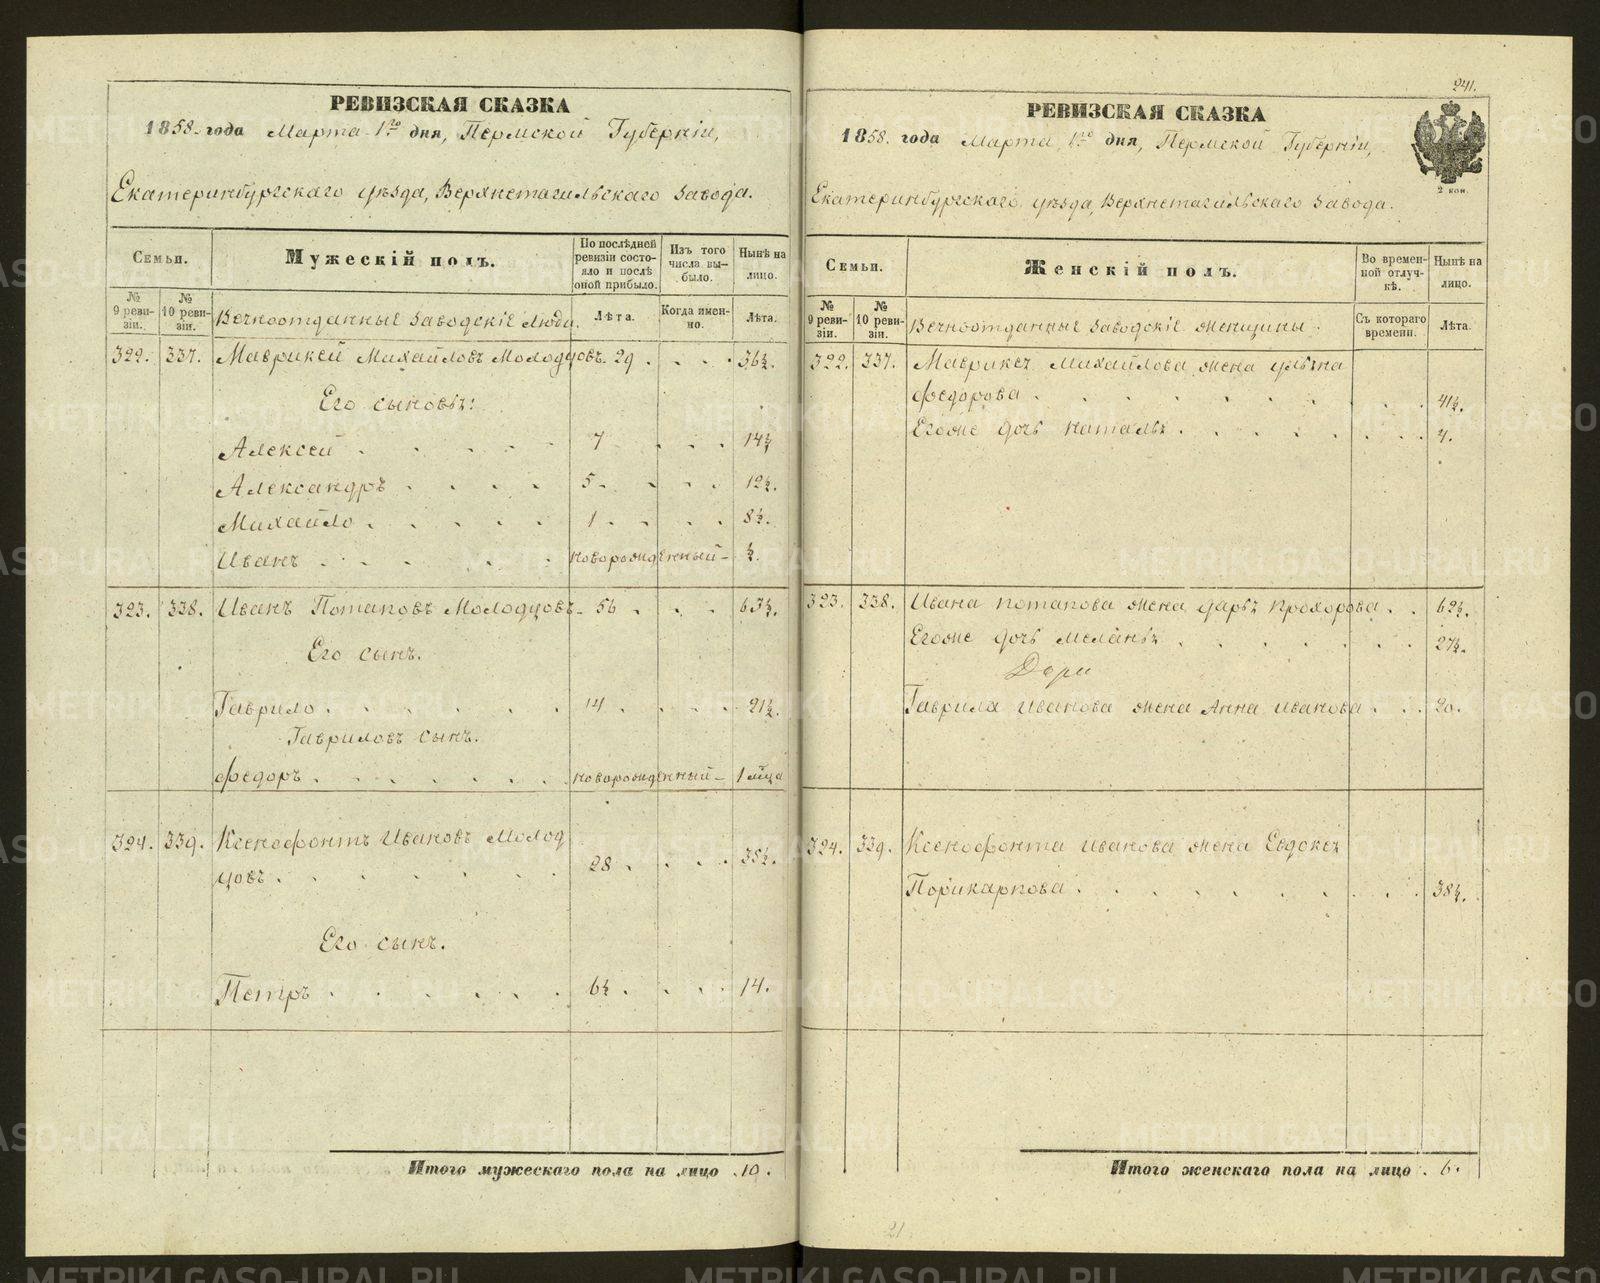 РЕВИЗСКАЯ СКАЗКА
1858. года Марта 1го дня, Пермской Губерніи,
Екатеринбургскаго уѣзда, Верхнетагильскаго завода.
Семьи.
Мужескій полъ.
По послѣдней ревизіи состояло и послѣ оной прибыло.
Изъ того числа выбыло.
Нынѣ на лицо.
№ 9 ревизіи.
№ 10 ревизіи.
Вечноотданные заводскіе люди.
Лѣта.
Когда именно.
Лѣта.
322. 337. Маврикей Михайловъ Молодцовъ. 29 . . . . 36½.
Его сыновья:
Алексей . . . . 7 . . . 14½
Александръ . . . . 5 . . . 12½.
Михайло . . . . . 1 . . . . 8½.
Иванъ . . . . новорожденный - ½.
323. 338. Иванъ Потаповъ Молодцовъ - 56 . . . 63½.
Его сынъ.
Гаврило . . . . . . 14 . . . . 21½.
Гавриловъ сынъ.
Федоръ . . . . . . . новорожденный - 1 м̃ца
324. 339. Ксенофонтъ Ивановъ Молод
цовъ . . . . . . . 28 . . . . 35½.
Его сынъ.
Петръ . . . . . . 6½ . . . . 14.
Итого мужескаго пола на лицо . 10 .
241.
РЕВИЗСКАЯ СКАЗКА
1858. года Марта 1го дня, Пермской Губерніи,
2 коп.
Екатеринбургскаго уѣзда, Верхнетагильскаго завода.
Семьи.
Женскій полъ.
Во временной отлучкѣ.
Нынѣ на лицо.
№ 9 ревизіи.
№ 10 ревизіи.
Вечноотданные заводскіе женщины.
Съ котораго времени.
Лѣта.
322. 337. Маврикея Михайлова жена Ульяна
Федорова . . . . . . . . . 41½.
Егоже дочь Наталья . . . . . . . . . 4.
323. 338. Ивана Потапова жена Дарья Прохорова . . 62½.
Егоже дочь Меланья . . . . . . . 27½.
Дари
Гаврила Иванова жена Анна Иванова . . . 20.
324. 339. Ксенофонта Иванова жена Евдокея
Порикарпова . . . . . . . . . 38½.
Итого женскаго пола на лицо . 6 .
21
METRIKI.GASO-URAL.RU